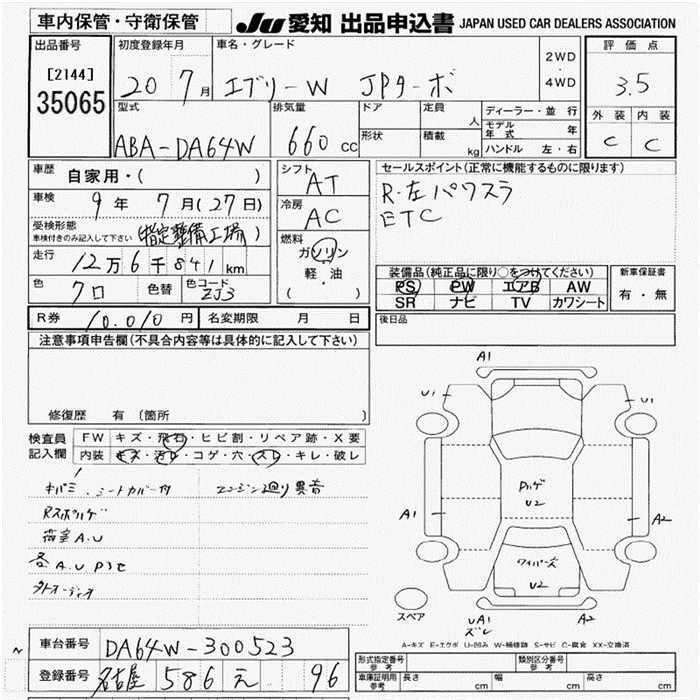 車内保管・守衛保管
JU 愛知 出品申込書 JAPAN USED CAR DEALERS ASSOCIATION
出品番号
[2144]
35065
初度登録年月
20 7月
車名・グレード
エブリーW JPターボ
2WD
・
4WD
評価点
3.5
外装 内装
C C
型式
ABA-DA64W
排気量
660 cc
ドア
形状
定員 人
積載 kg
ディーラー・並行
モデル年式 年
ハンドル 左・右
車歴 自家用・( )
車検 9年 7月(27日)
受検形態
車検付きのみ記入して下さい (指定整備工場)
走行 12万6千841km
色 クロ 色替 色コード ZJ3
シフト
AT
冷房
AC
燃料
ガソリン
・
軽・油
( )
セールスポイント(正常に機能するものに限ります)
R・左パワスラ
ETC
装備品(純正品に限り○をつけてください)
PS PW エアB AW
SR ナビ TV カワシート
新車保証書
有・無
後日品
R券 10.010円 名変期限 月 日
注意事項申告欄(不具合内容等は具体的に記入して下さい)
修復歴 有(箇所 )
検査員記入欄
FW キズ・飛石・ヒビ割・リペア跡・X要
内装 キズ・汚レ・コゲ・穴・スレ・キレ・破レ
キバミ、シートカバー付 エンジン廻り異音
Rスポハゲ
荷室A.U
各A.U Pマセ
外オーディオ
A1
U1 U1
Pハゲ
U2
A1 A2
ワイパーズ
U2
スペア
UA1
ズレ
A2
A-キズ E-エクボ U-凹み W-補修跡 S-サビ C-腐食 XX-交換済
車台番号 DA64W-300523
登録番号 名古屋 586 え 96
形式指定番号
参考
類別区分番号
参考
車庫証明用
参考
長さ cm 幅 cm 高さ cm